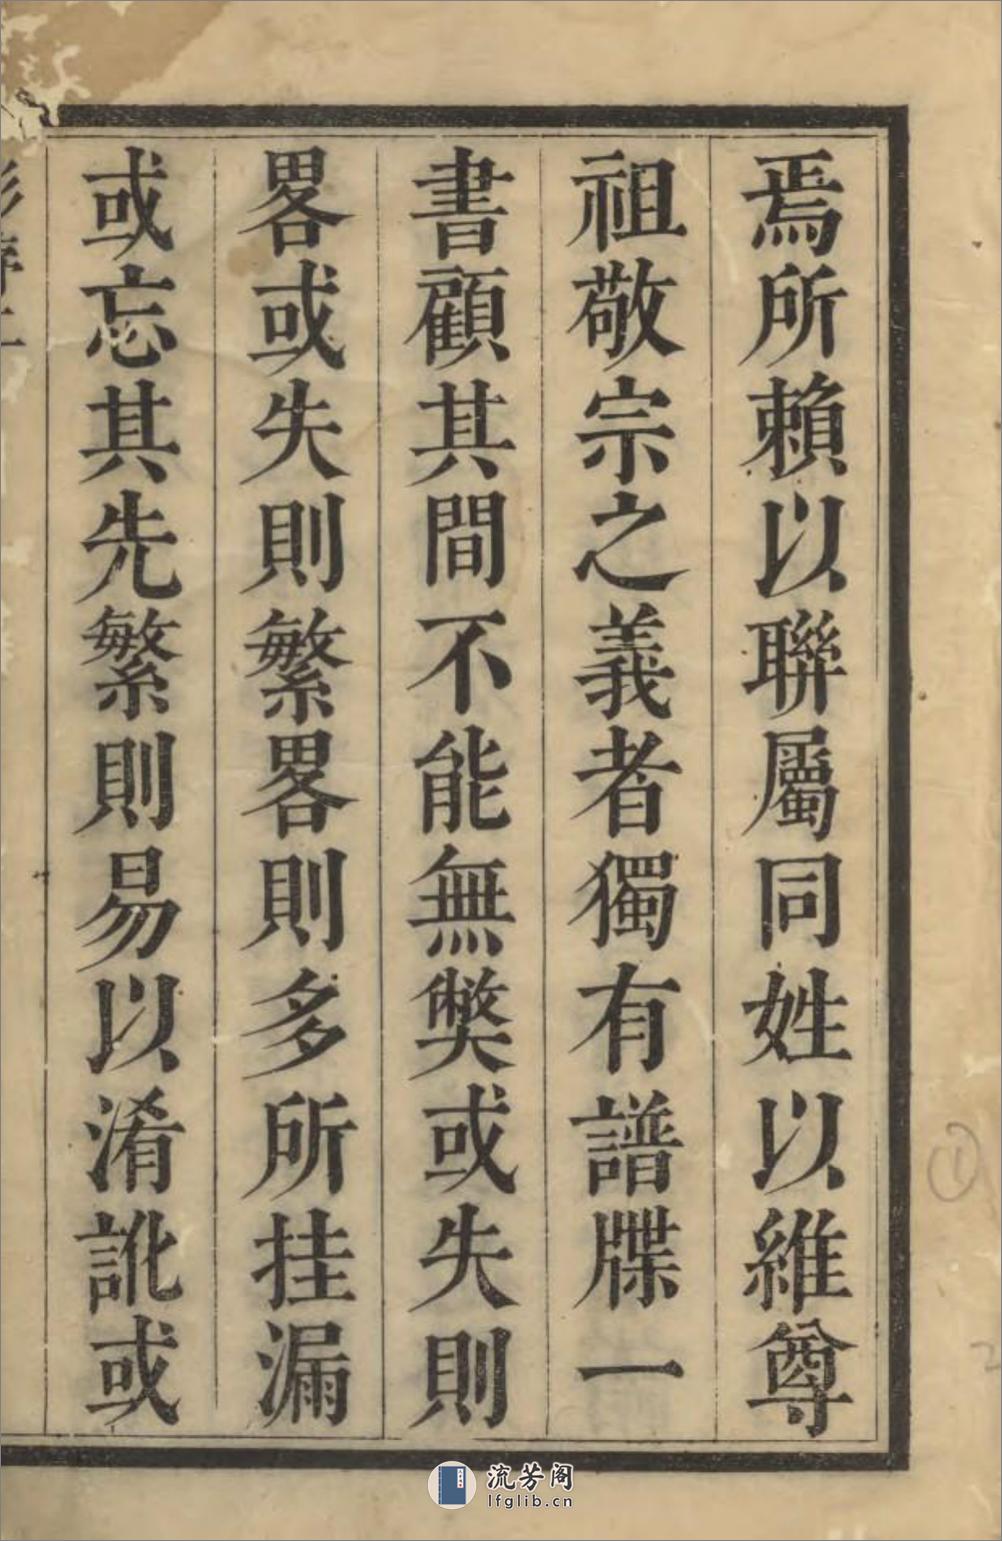 焉所賴以聯屬同姓以維尊
祖敬宗之義者獨有譜牒一
書顧其間不能無獘或失則
畧或失則繁畧則多所挂漏
或忘其先繁則易以淆訛或
流芳阁
lfglib.cn